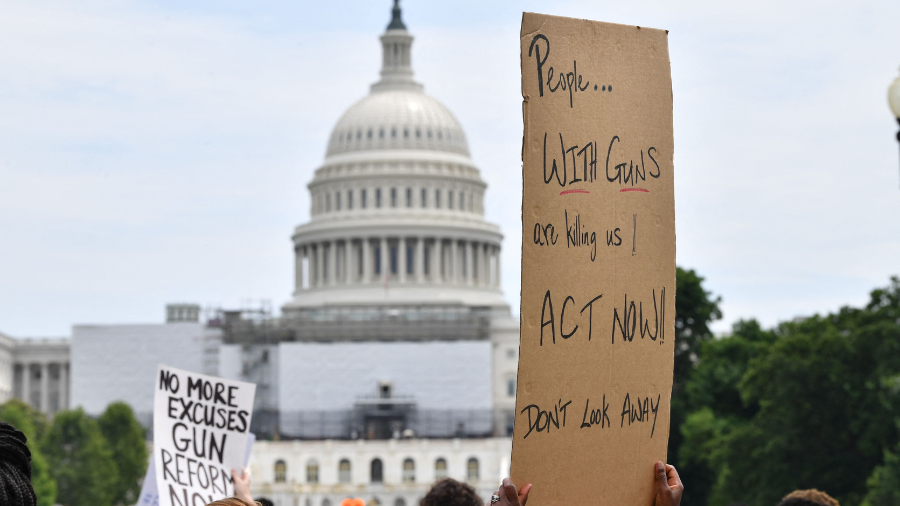 People...
WITH GUNS
are killing us!
ACT NOW!!
DON'T LOOK AWAY
NO MORE
EXCUSES
GUN
REFORM
NOW